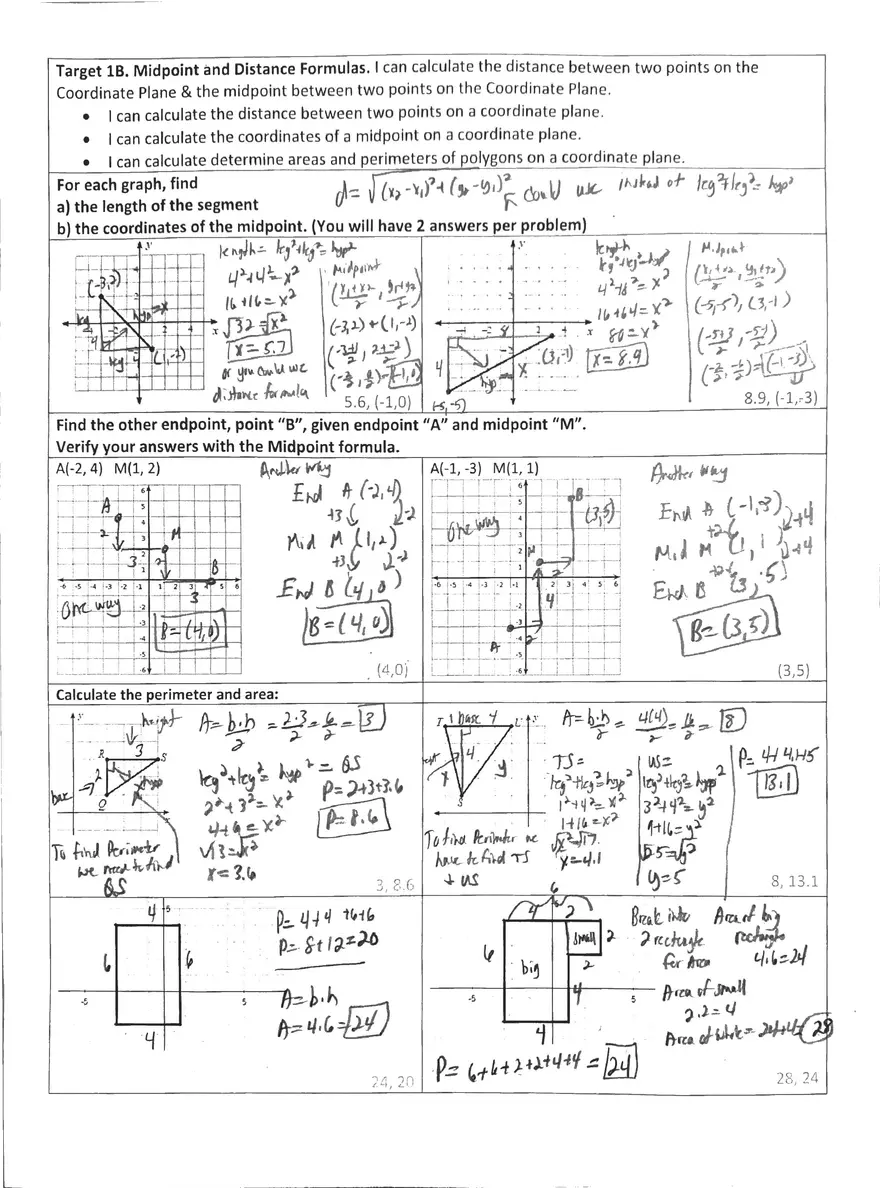 Target 1B. Midpoint and Distance Formulas. I can calculate the distance between two points on the
Coordinate Plane & the midpoint between two points on the Coordinate Plane.
• I can calculate the distance between two points on a coordinate plane.
• I can calculate the coordinates of a midpoint on a coordinate plane.
• I can calculate determine areas and perimeters of polygons on a coordinate plane.
For each graph, find
a) the length of the segment
b) the coordinates of the midpoint. (You will have 2 answers per problem)
d=√(x₂-x₁)²+(y₂-y₁)²
could use instead of leg²+leg²=hyp²
(-3,2)
(1,-2)
leg
4
leg 4
hyp=x
length= leg²+leg²=hyp²
4²+4²=x²
16+16=x²
√32=√x²
x=5.7
or you could use
distance formula
Midpoint
(x₁+x₂/2, y₁+y₂/2)
(-3,2)+(1,-2)
(-3+1/2, 2+-2/2)
(-2/2, 0/2)=(-1,0)
5.6, (-1,0)
8
4
hyp x
(3,-1)
(-5,-5)
length
leg²+leg²=hyp²
4²+8²=x²
16+64=x²
80=x²
x=8.9
Midpoint
(x₁+x₂/2, y₁+y₂/2)
(-5,-5), (3,-1)
(-5+3/2, -5-1/2)
(-2/2, -6/2)=(-1-3)
8.9, (-1,-3)
Find the other endpoint, point "B", given endpoint "A" and midpoint "M".
Verify your answers with the Midpoint formula.
A(-2, 4) M(1, 2)
A
M
B
2
3
2
3
One way
B=(4,0)
Another way
End A (-2,4)
+3 -2
Mid M (1,2)
+3 -2
End B (4,0)
B=(4,0)
(4,0)
A(-1, -3) M(1, 1)
One way
B
(3,5)
M
2
4
A
2
Another way
End A (-1,-3)
+2 +4
Mid M (1, 1)
+2 +4
End B (3, 5)
B=(3,5)
(3,5)
Calculate the perimeter and area:
height
R 3 S
base 2
hyp
Q
To find Perimeter
we need to find
QS
A=b·h/2 = 2·3/2 = 6/2 = 3
leg²+leg²=hyp² = QS
2²+3²=x²
4+9=x²
√13=√x²
x=3.6
P=2+3+3.6
P=8.6
3, 8.6
T 1 base 4 U
4
x
y
S
To find Perimeter we
have to find TS
+ US
A=b·h/2 = 4(4)/2 = 16/2 = 8
TS=
leg²+leg²=hyp²
1²+4²=x²
1+16=x²
√x²=√17
x=4.1
US=
leg²+leg²=hyp²
3²+4²=y²
9+16=y²
√25=√y²
y=5
P=4+4.1+5
13.1
8, 13.1
4
6
6
4
P=4+4+6+6
P=8+12=20
A=b·h
A=4·6=24
24, 20
6
4 2
6
big
small 2
2
4
4
Break into
2 rectangle
for Area
Area of big
rectangle
4·6=24
Area of small
2·2=4
Area of whole=24+4=28
P=6+6+2+2+4+4=24
28, 24